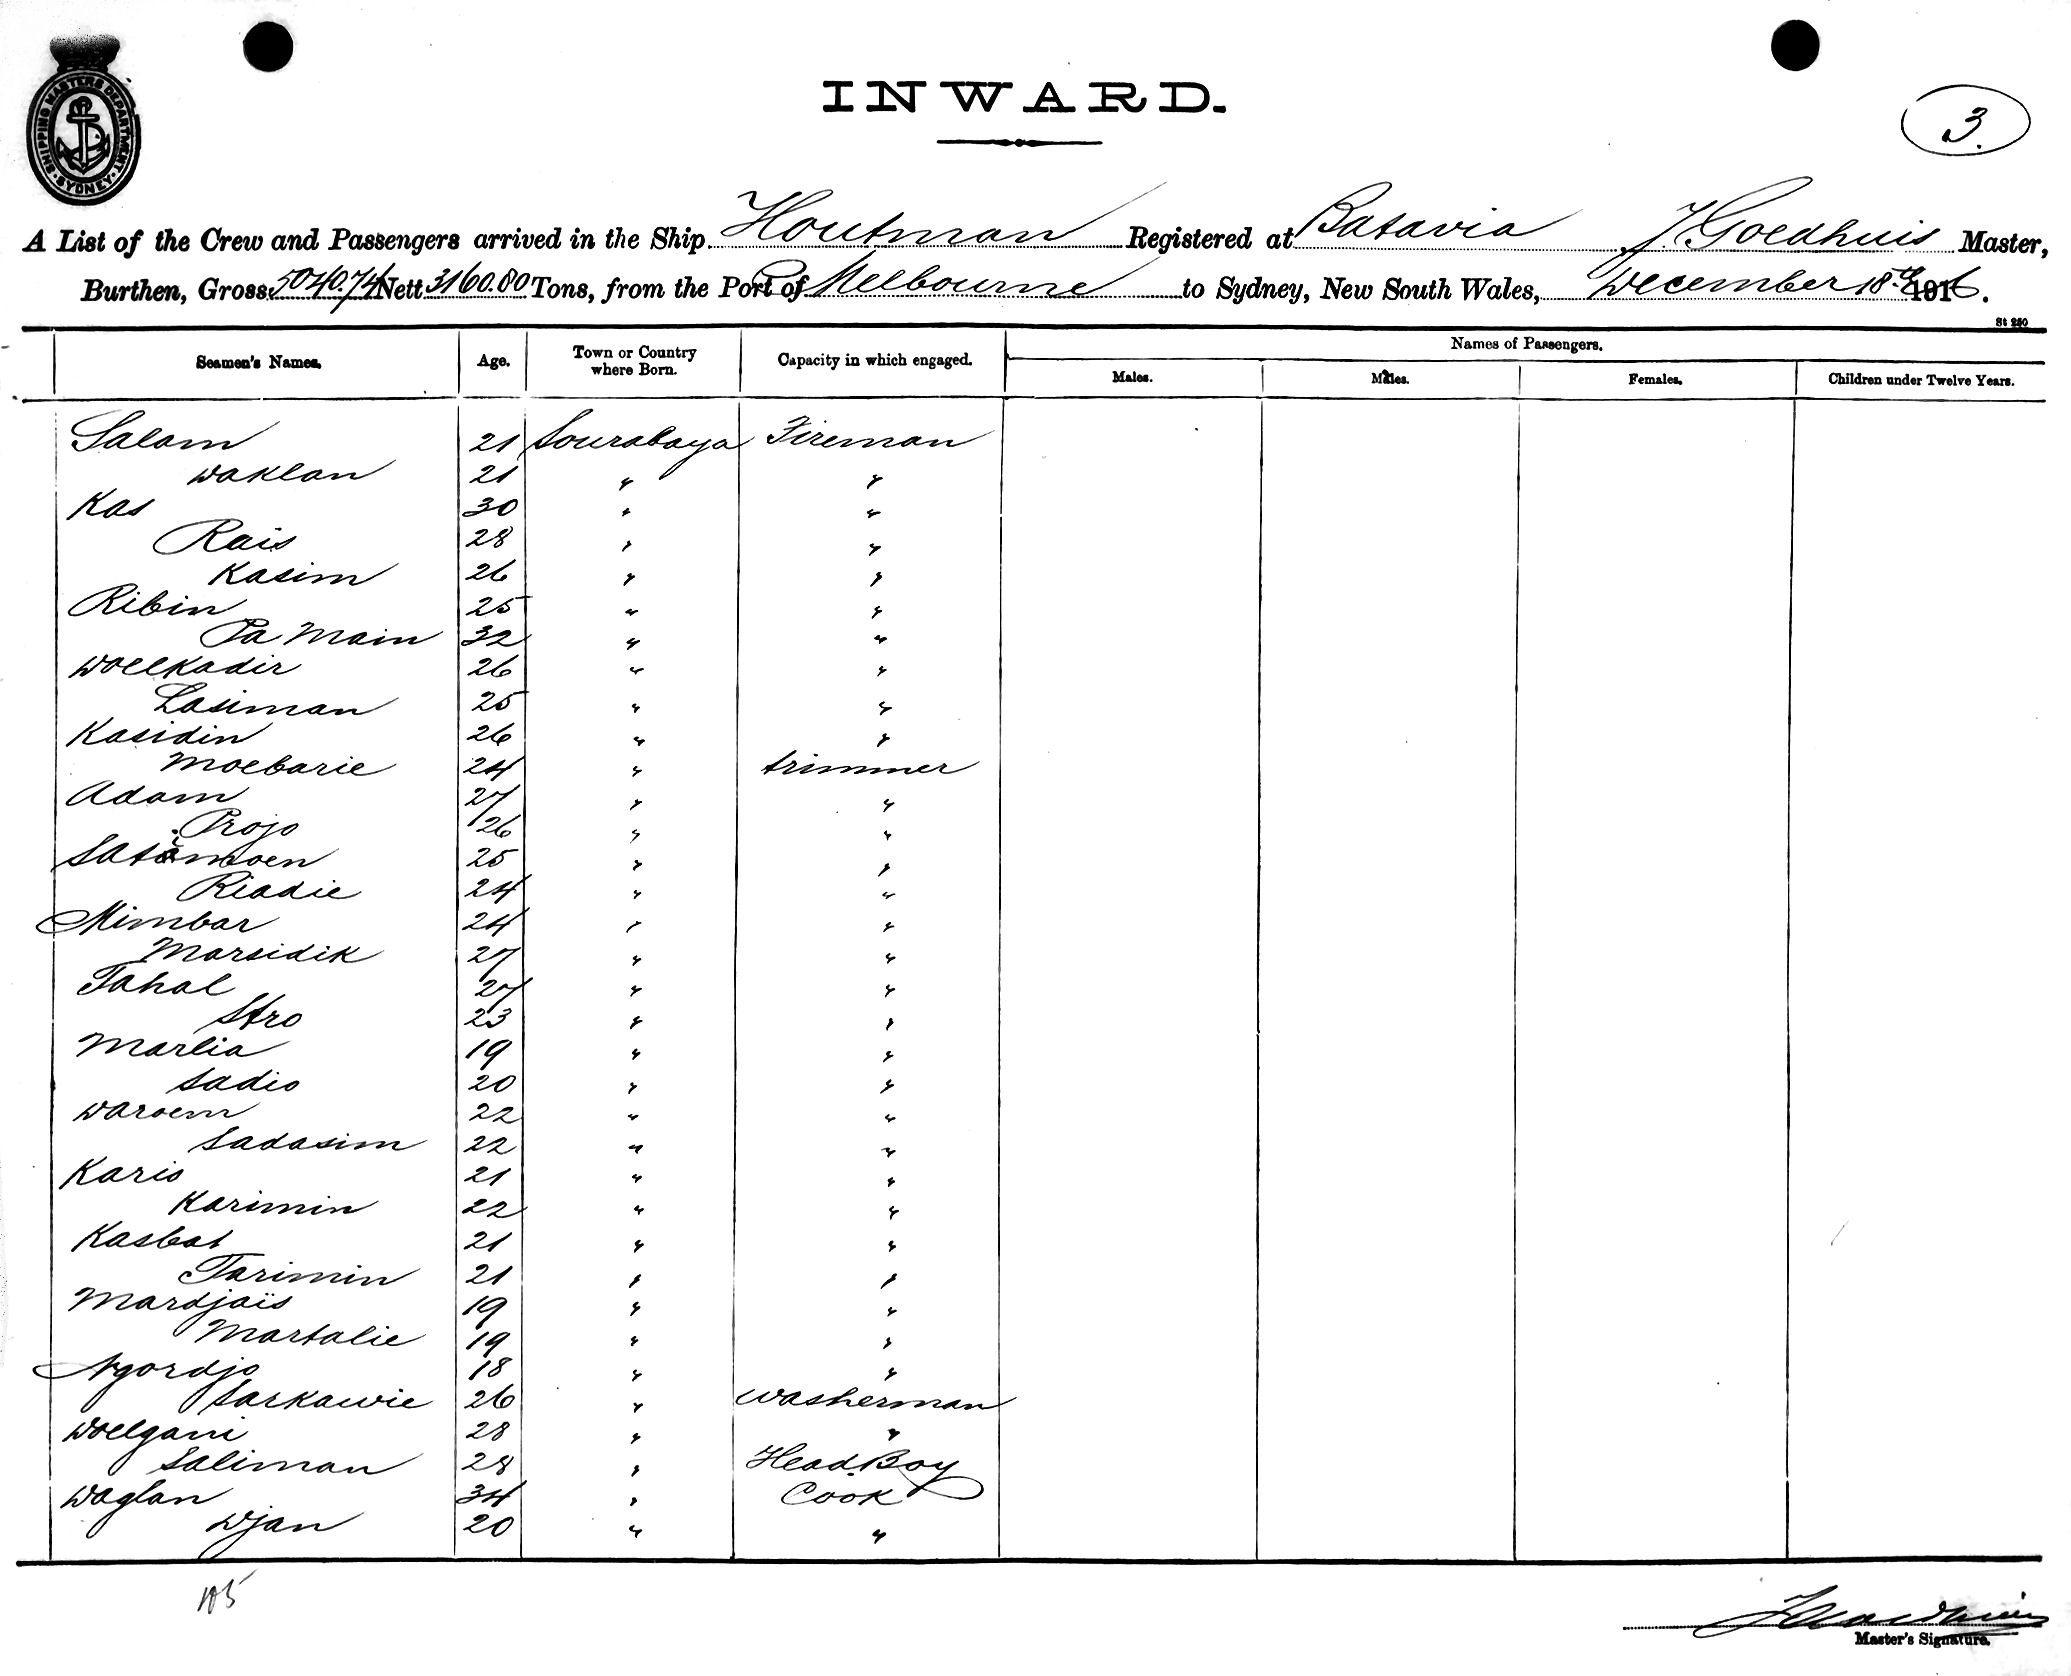 SHIPPING MASTERS DEPARTMENT
SYDNEY
INWARD.
3.
A List of the Crew and Passengers arrived in the Ship Houtman Registered at Batavia J. Goedhuis Master,
Burthen, Gross 5040.74 Nett 3160.80 Tons, from the Port of Melbourne to Sydney, New South Wales, December 18th 1916.
St 250
Seamen's Names. Age. Town or Country where Born. Capacity in which engaged. Names of Passengers.
Males. Males. Females. Children under Twelve Years.
Salam 21 Sourabaya Fireman
Waklan 21 " "
Kas 30 " "
Rais 28 " "
Kasim 26 " "
Ribin 25 " "
Pa Main 32 " "
Woelkadir 26 " "
Lasiman 25 " "
Kasidin 26 " "
Moebarie 24 " trimmer
Adam 27 " "
Projo 26 " "
25 " "
Riadie 24 " "
Mimbar 24 " "
Marsidik 27 " "
Tahal 27 " "
Stro 23 " "
Marlia 19 " "
Sadio 20 " "
Waroem 22 " "
Sadasim 22 " "
Karis 21 " "
Karimin 22 " "
Kasbat 21 " "
Tarimin 21 " "
Mardjaïs 19 " "
Martalie 19 " "
Ngordjo 18 " "
Sarkawie 26 " Washerman
Woelgani 28 " "
Saliman 28 " Head Boy
Waglan 34 " Cook
Wjan 20 " "
Master's Signature.